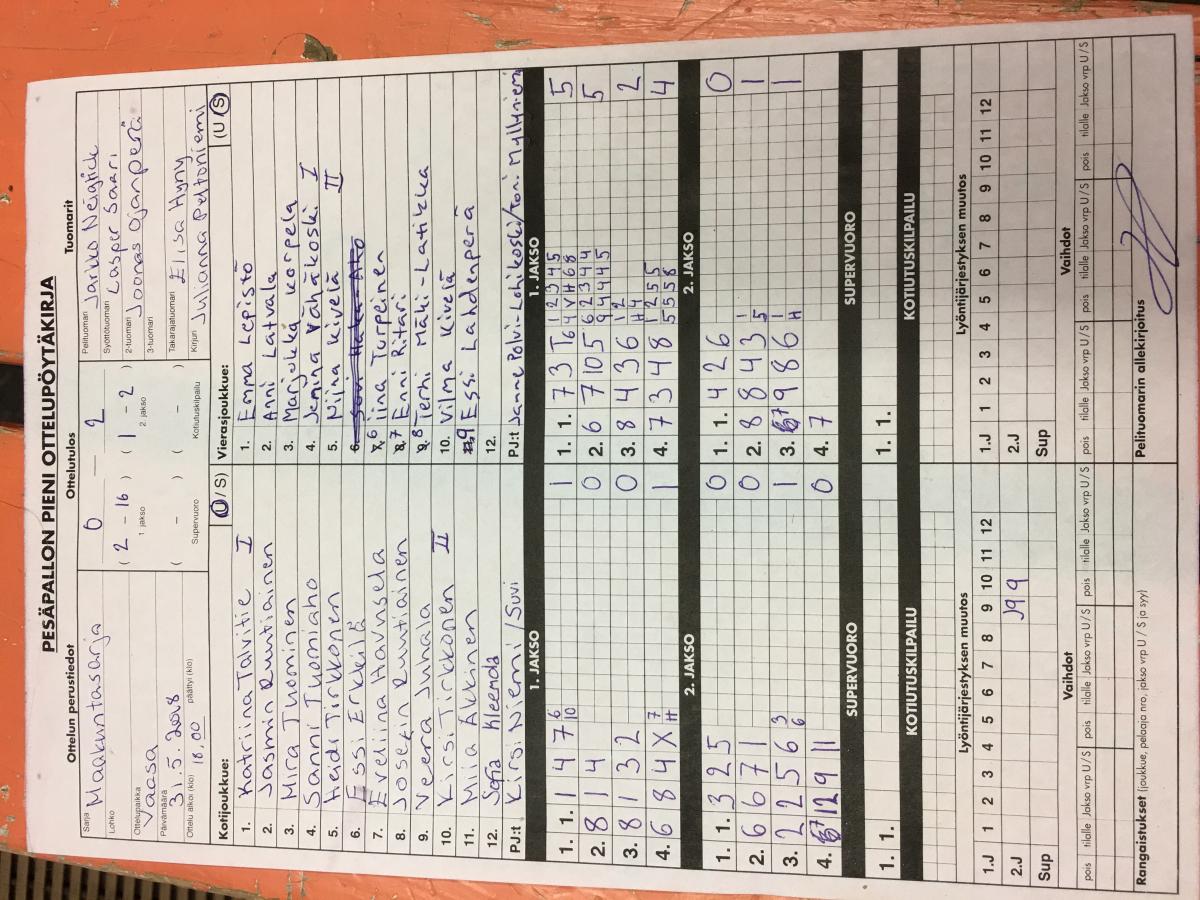 PESÄPALLON PIENI OTTELUPÖYTÄKIRJA
Ottelun perustiedot
Sarja Maakuntasarja
Lohko
Ottelupaikka Vaasa
Päivämäärä 31.5.2018
Ottelu alkoi (klo) 18.00 päättyi (klo)
Ottelutulos
0 — 2
( 2 - 16 ) ( 1 - 2 )
1. jakso 2. jakso
( - ) ( - )
Supervuoro Kotiutuskilpailu
Tuomarit
Pelituomari Jarkko Neiglick
Syöttötuomari Casper Saari
2-tuomari Joonas Ojanperä
3-tuomari
Takarajatuomari Elisa Hyny
Kirjuri Julianna Peltoniemi
Kotijoukkue: (U / S)
1. Katriina Talvitie I
2. Jasmin Ruutiainen
3. Mira Tuominen
4. Sanni Tuomiaho
5. Heidi Tirkkonen
6. Essi Erkkilä
7. Eveliina Haunsela
8. Josefin Ruutiainen
9. Veera Juhala
10. Kirsi Tirkkonen II
11. Miia Äkkinen
12. Sofia Kleemola
PJ:t Kirsi Niemi / Suvi
Vierasjoukkue: (U S)
1. Emma Lepistö
2. Anni Latvala
3. Marjukka Korpela
4. Jemina Vähäkoski I
5. Niina Kivelä II
6.
6 Iina Turpeinen
7 Enni Ritari
8 Terhi Mäki-Latikka
10. Vilma Kivelä
9 Essi Lahdenperä
12.
PJ:t Janne Polvi-Lohikoski/Toni Myllyniemi
1. JAKSO
1. 1. 1 4 7 6 10 1
2. 8 1 4 0
3. 8 1 3 2 0
4. 6 8 4 X 7 H 1
2. JAKSO
1. 1. 3 2 5 0
2. 6 6 7 1 0
3. 2 2 5 6 3 6 1
4. 12 9 11 0
SUPERVUORO
1. 1.
KOTIUTUSKILPAILU
1. JAKSO
1. 1. 7 3 T 1 2 3 4 5 6 4 V H 6 8 5
2. 6 7 10 5 6 2 3 4 4 9 4 4 4 5 5
3. 8 4 3 6 1 2 H 4 2
4. 7 3 4 8 1 2 5 5 5 5 5 8 4
2. JAKSO
1. 1. 4 2 6 0
2. 8 8 4 3 1 5 1
3. 9 8 6 1 H 1
4. 7
SUPERVUORO
1. 1.
KOTIUTUSKILPAILU
Lyöntijärjestyksen muutos
1.J 1 2 3 4 5 6 7 8 9 10 11 12
2.J J99
Sup
Lyöntijärjestyksen muutos
1.J 1 2 3 4 5 6 7 8 9 10 11 12
2.J
Sup
Vaihdot
pois tilalle Jakso vrp U/S pois tilalle Jakso vrp U/S pois tilalle Jakso vrp U/S
Vaihdot
pois tilalle Jakso vrp U/S pois tilalle Jakso vrp U/S pois tilalle Jakso vrp U/S
Rangaistukset (joukkue, pelaaja nro, jakso vrp U / S ja syy)
Pelituomarin allekirjoitus